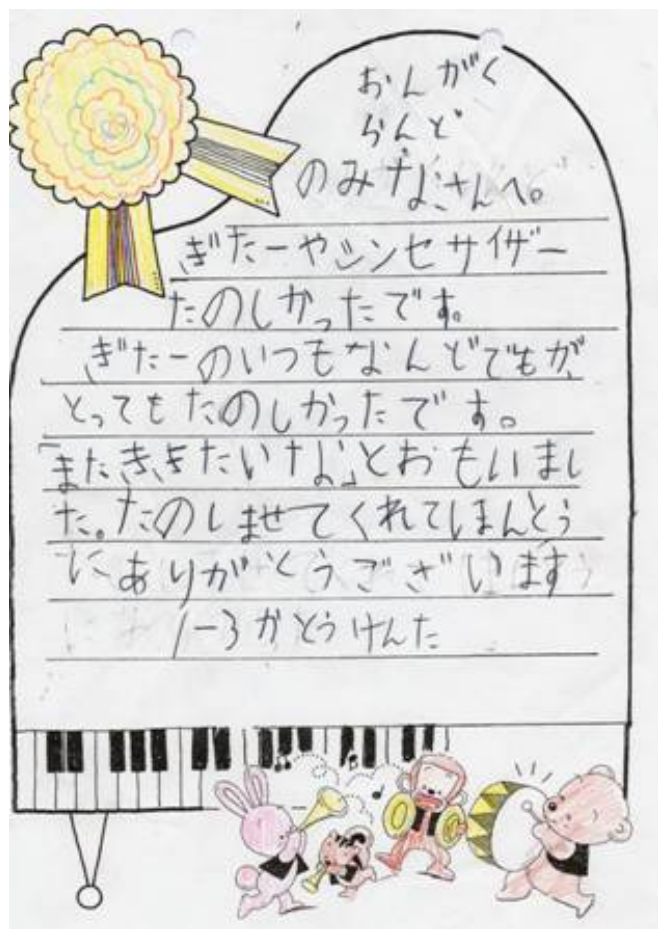 おんがく
らんど
のみなさんへ。
ぎたーやシンセサイザー
たのしかったです。
ぎたーのいつもなんどでもが、
とってもたのしかったです。
「またききたいな」とおもいまし
た。たのしませてくれてほんとう
にありがとうございます
1-3かとうけんた